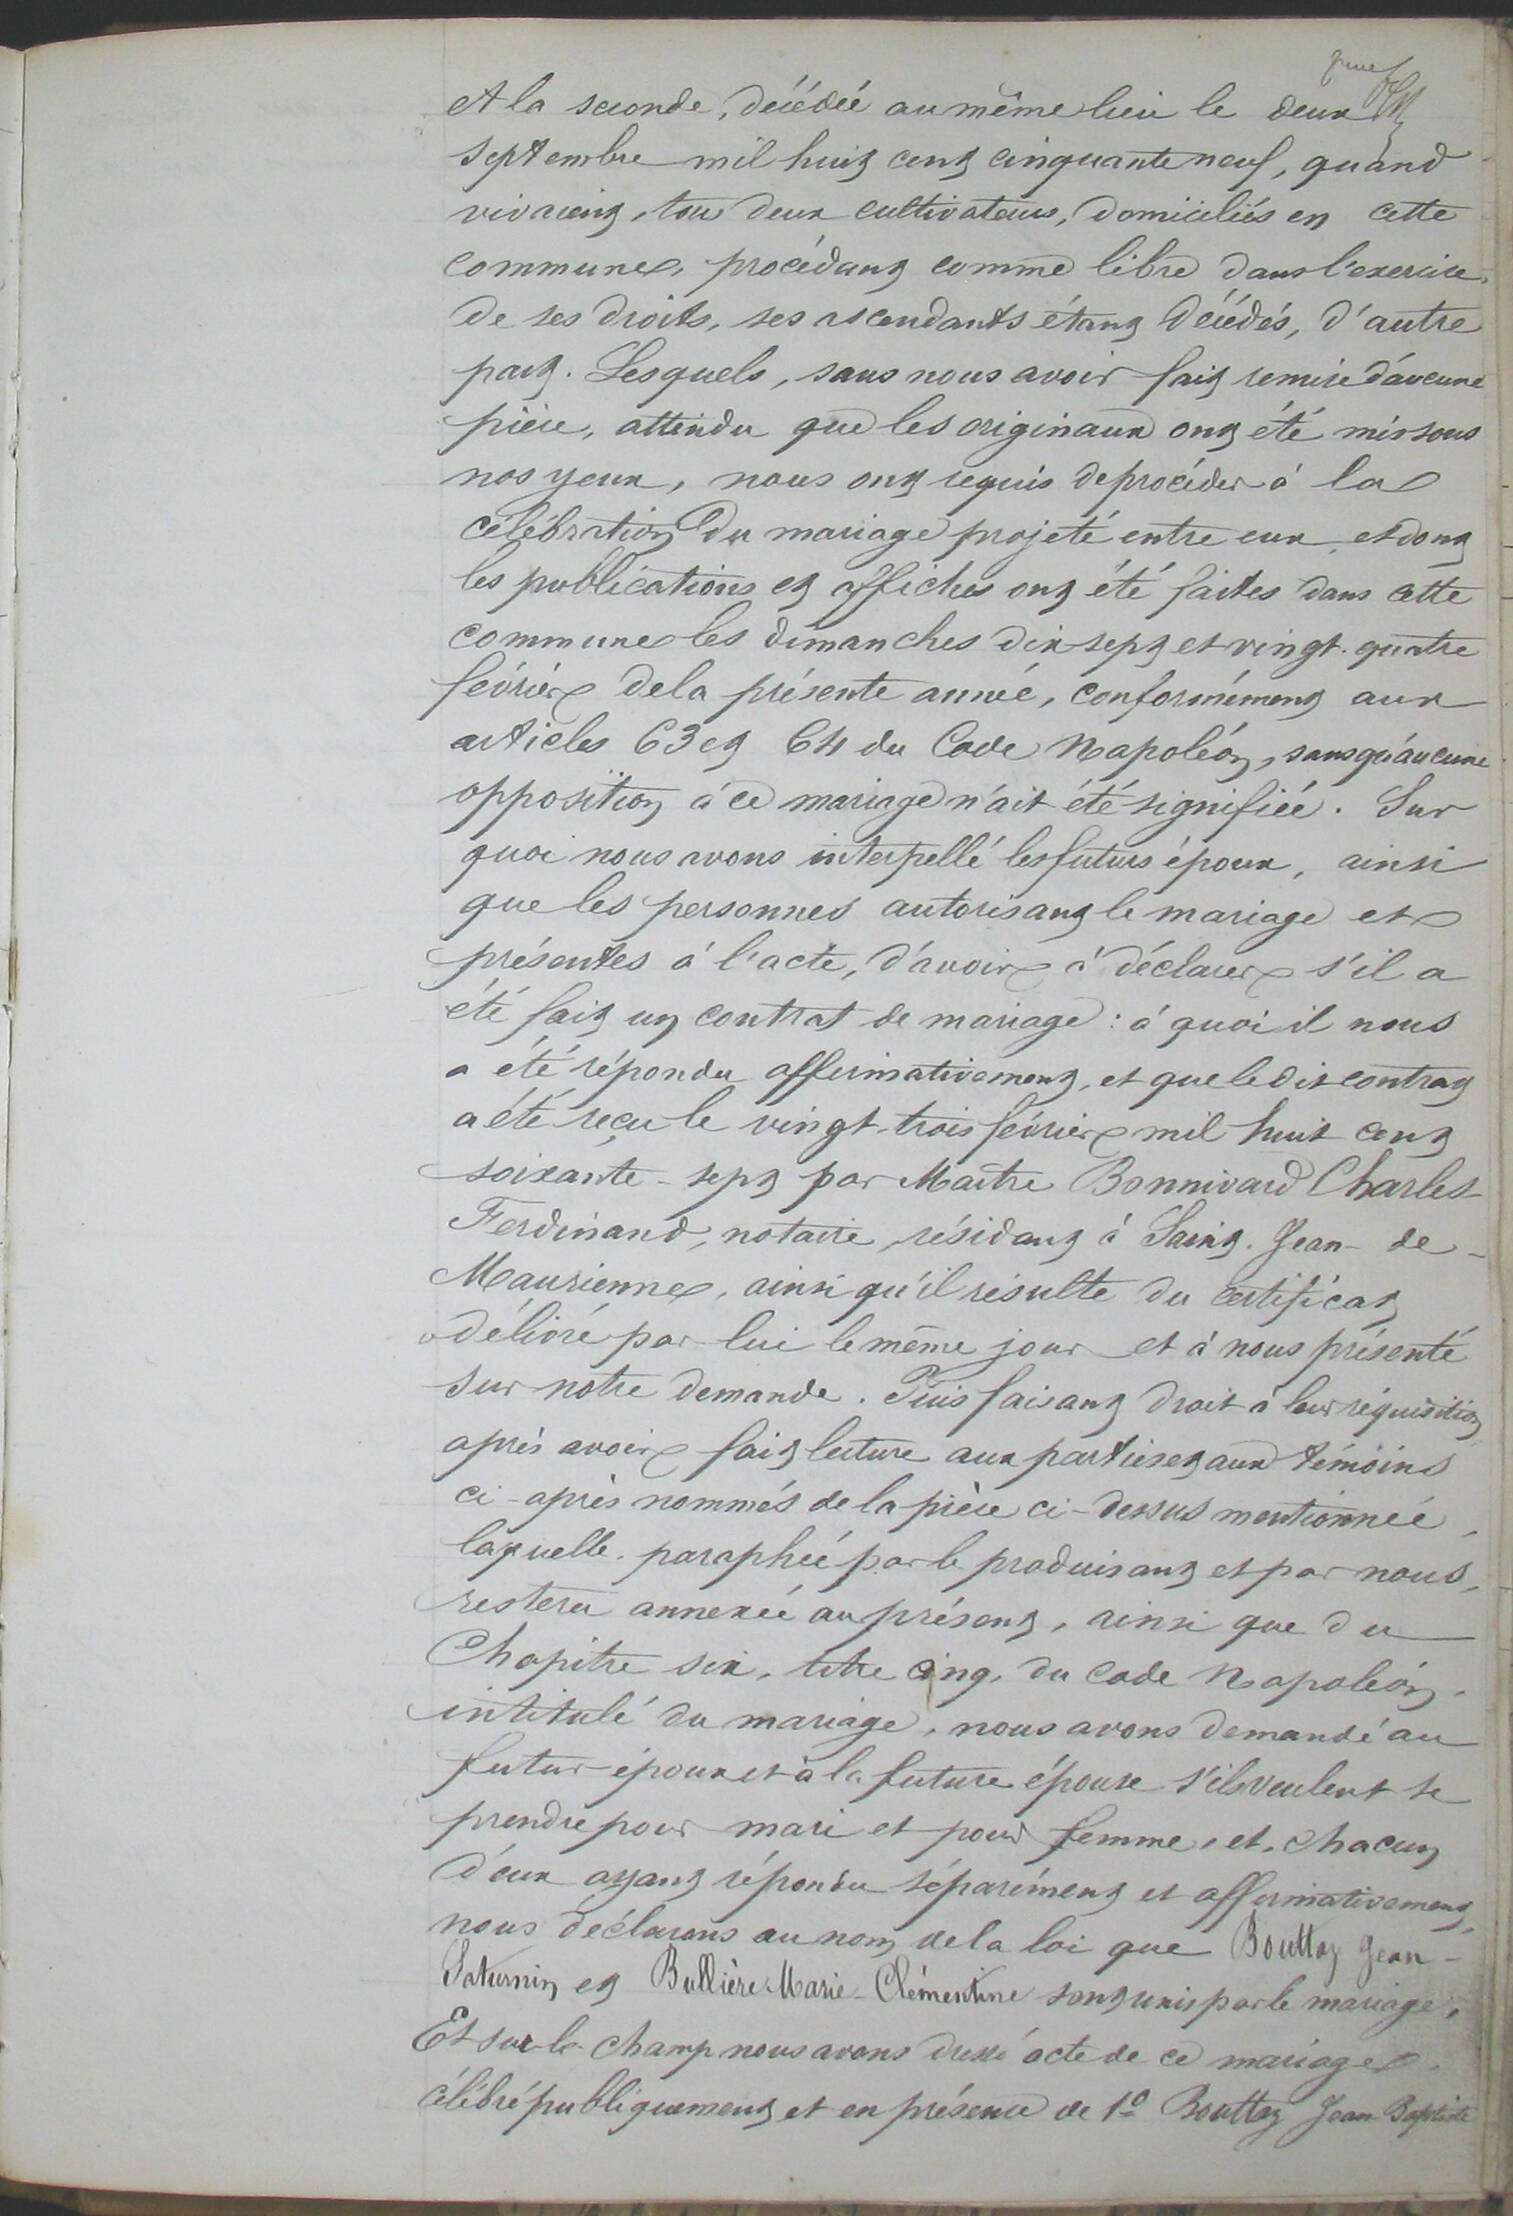 et la seconde, décédée au même lieu le deux
septembre mil huit cent cinquante neuf, quand
vivaient, tous deux cultivateurs, domiciliés en cette
commune, procédant comme libre dans l'exercice
de ses droits, ses ascendants étant décédés, d'autre
part. Lesquels, sans nous avoir fait remise d'aucune
pièce, attendu que les originaux ont été mis sous
nos yeux, nous ont requis de procéder à la
célébration du mariage projeté entre eux, et dont
les publications et affiches ont été faites dans cette
commune les dimanches dix-sept et vingt-quatre
février de la présente année, conformément aux
articles 63 et 64 du Code Napoléon, sans qu'aucune
opposition à ce mariage n'ait été signifiée. Sur
quoi nous avons interpellé les futurs époux, ainsi
que les personnes autorisant le mariage et
présentes à l'acte, d'avoir à déclarer s'il a
été fait un contrat de mariage : à quoi il nous
a été répondu affirmativement, et que ledit contrat
a été reçu le vingt-trois février mil huit cent
soixante-sept par Maître Bonnivard Charles
Ferdinand, notaire, résidant à Saint-Jean-de-
Maurienne, ainsi qu'il résulte du certificat
délivré par lui le même jour et à nous présenté
sur notre demande. Puis faisant droit à leur réquisition
après avoir fait lecture aux parties et aux témoins
ci-après nommés de la pièce ci-dessus mentionnée,
laquelle, paraphée par le produisant et par nous,
restera annexée au présent, ainsi que du
Chapitre six, titre cinq, du Code Napoléon,
intitulé du mariage, nous avons demandé au
futur époux et à la future épouse s'ils veulent se
prendre pour mari et pour femme, et, chacun
d'eux ayant répondu séparément et affirmativement,
nous déclarons au nom de la loi que Bouttaz Jean-
Saturnin et Bullière Marie-Clémentine sont unis par le mariage.
Et sur-le-champ nous avons dressé acte de ce mariage
célébré publiquement et en présence de 1º Bouttaz Jean Baptiste